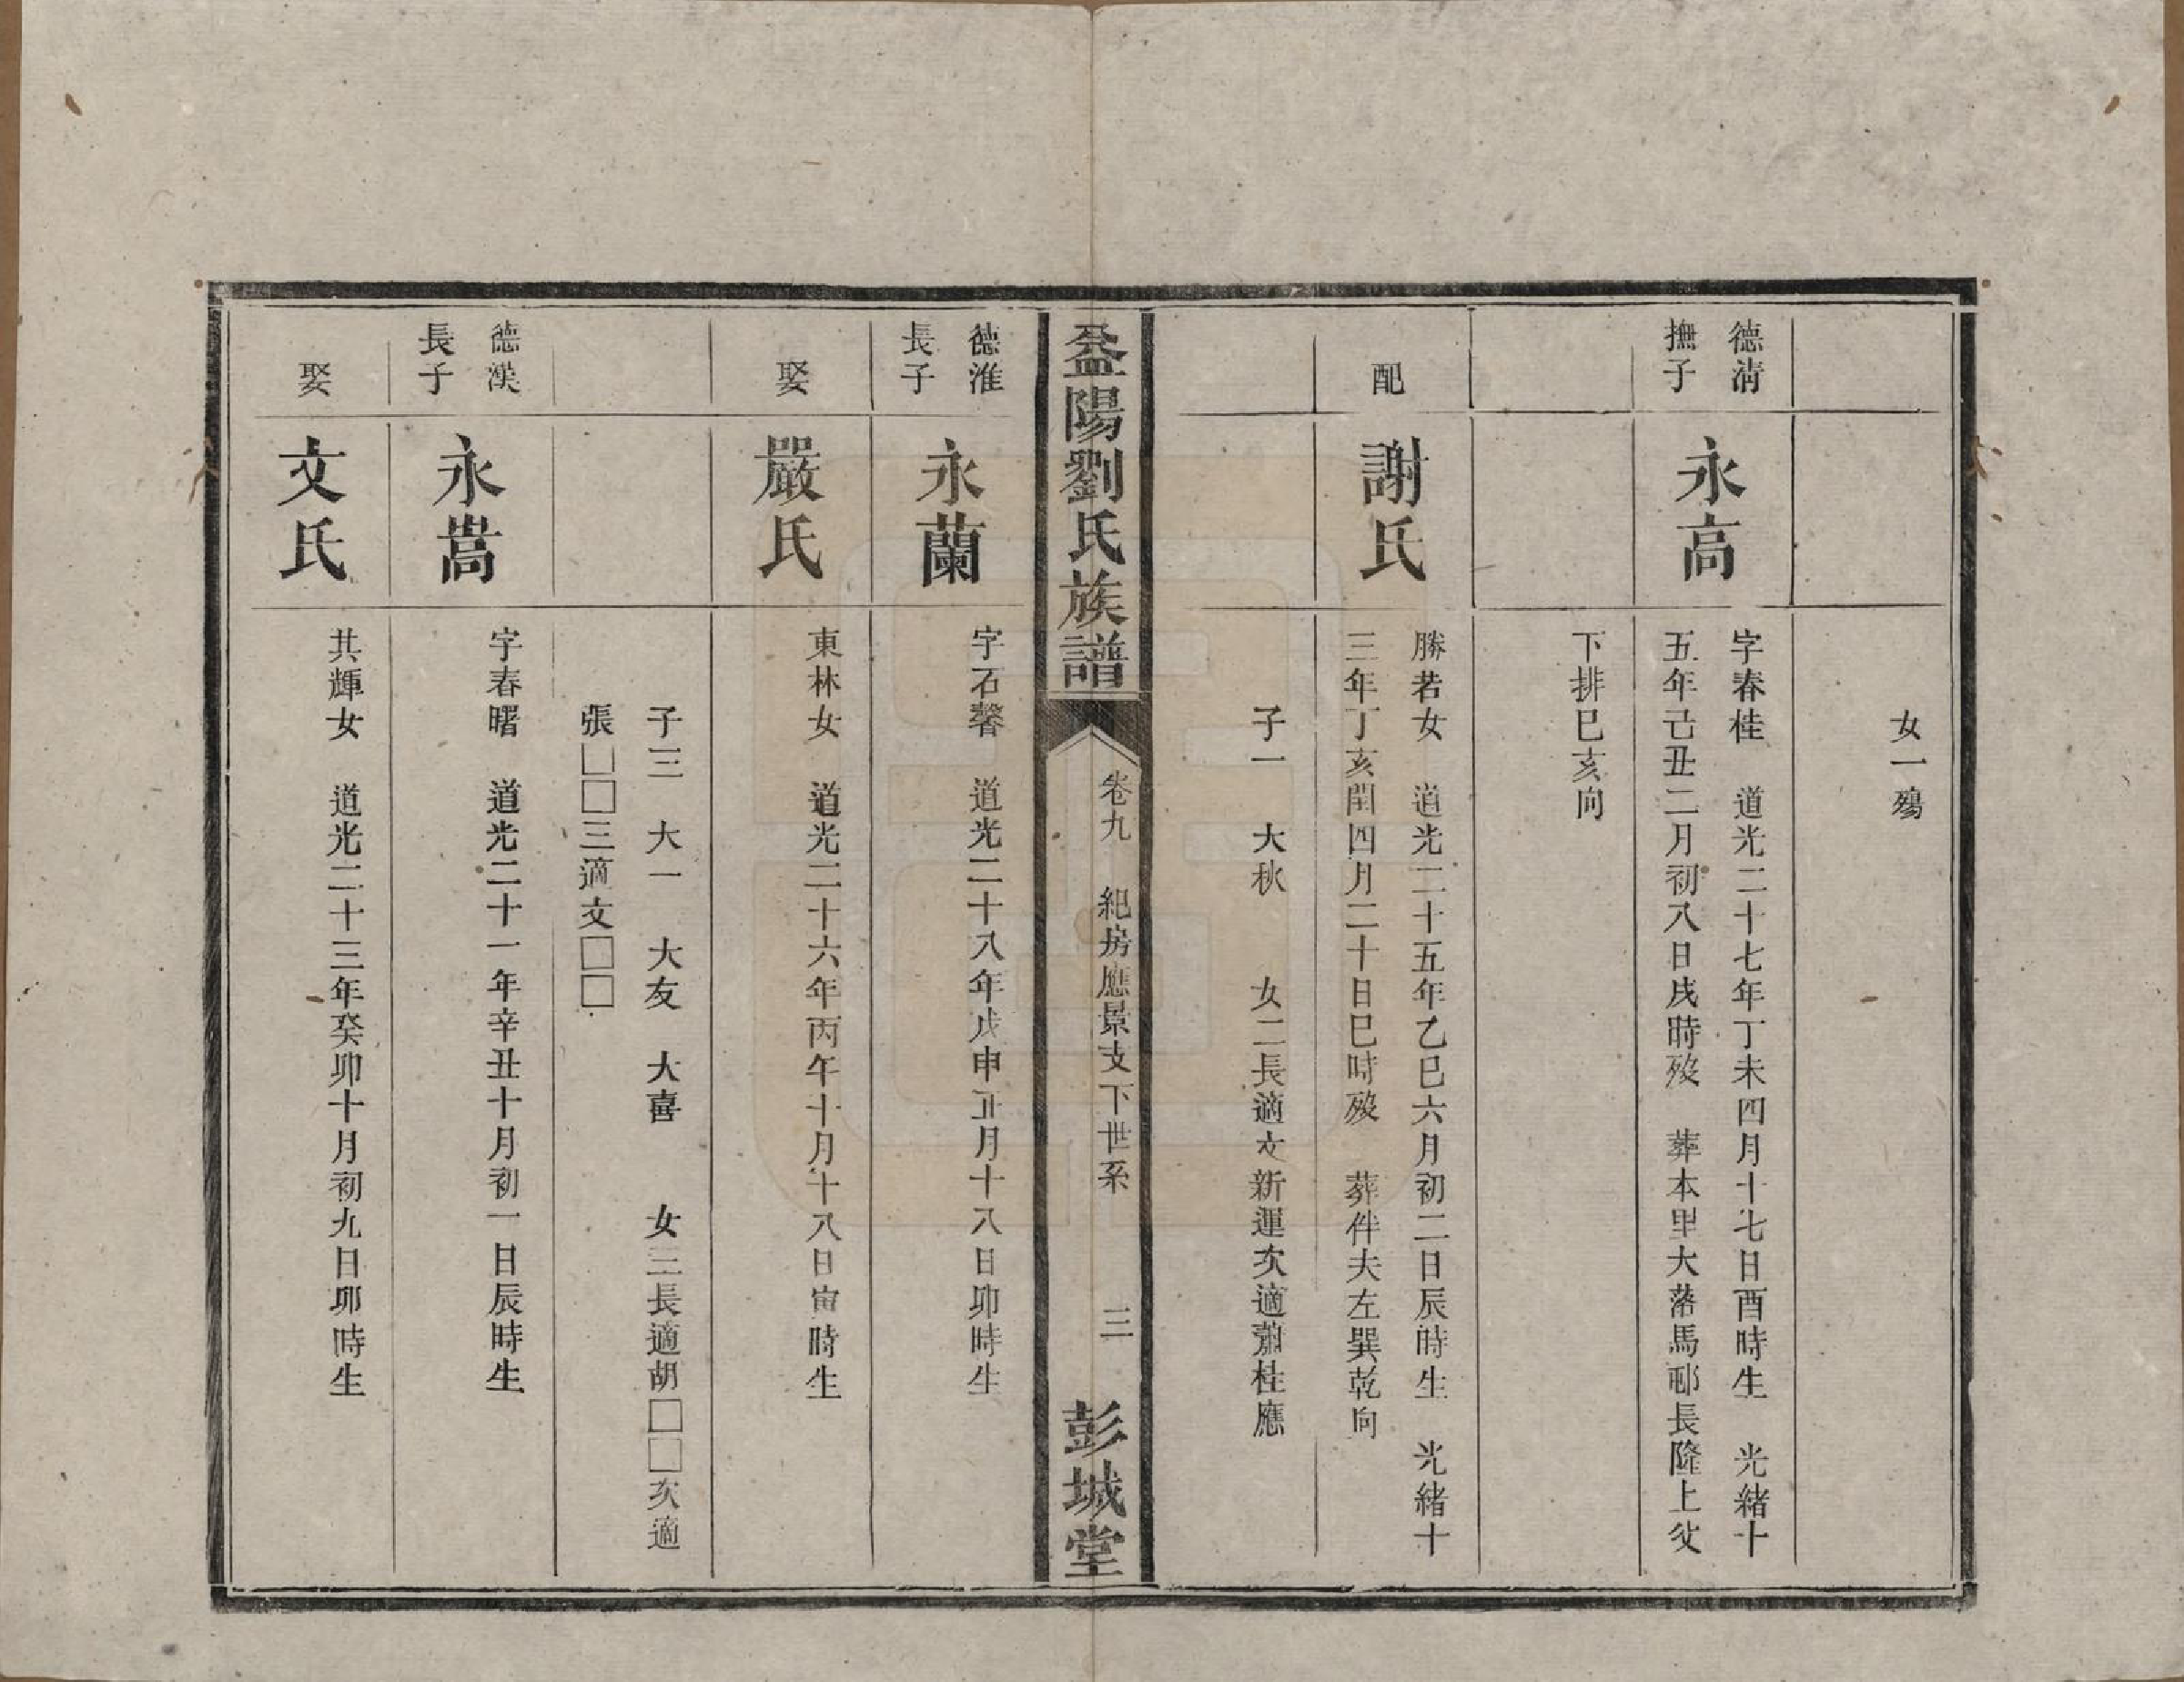 女一殤
德清
撫子
永高
字春桂　道光二十七年丁未四月十七日酉時生　光緒十
五年己丑二月初八日戌時歿　葬本里大落馬邨長隆上父
下排巳亥向
配
謝氏
勝若女　道光二十五年乙巳六月初二日辰時生　光緒十
三年丁亥閏四月二十日巳時歿　葬伴夫左巽乾向
子一　大秋　女二長適文新運次適蕭桂應
益陽劉氏族譜
卷九　紀房應景支下世系　三
彭城堂
德淮
長子
永蘭
字石馨　道光二十八年戊申正月十八日卯時生
娶
嚴氏
東林女　道光二十六年丙午十月十八日寅時生
子三　大一　大友　大喜　女三長適胡□□次適
張□□三適文□□
德漢
長子
永嵩
字春曙　道光二十一年辛丑十月初一日辰時生
娶
文氏
共輝女　道光二十三年癸卯十月初九日卯時生